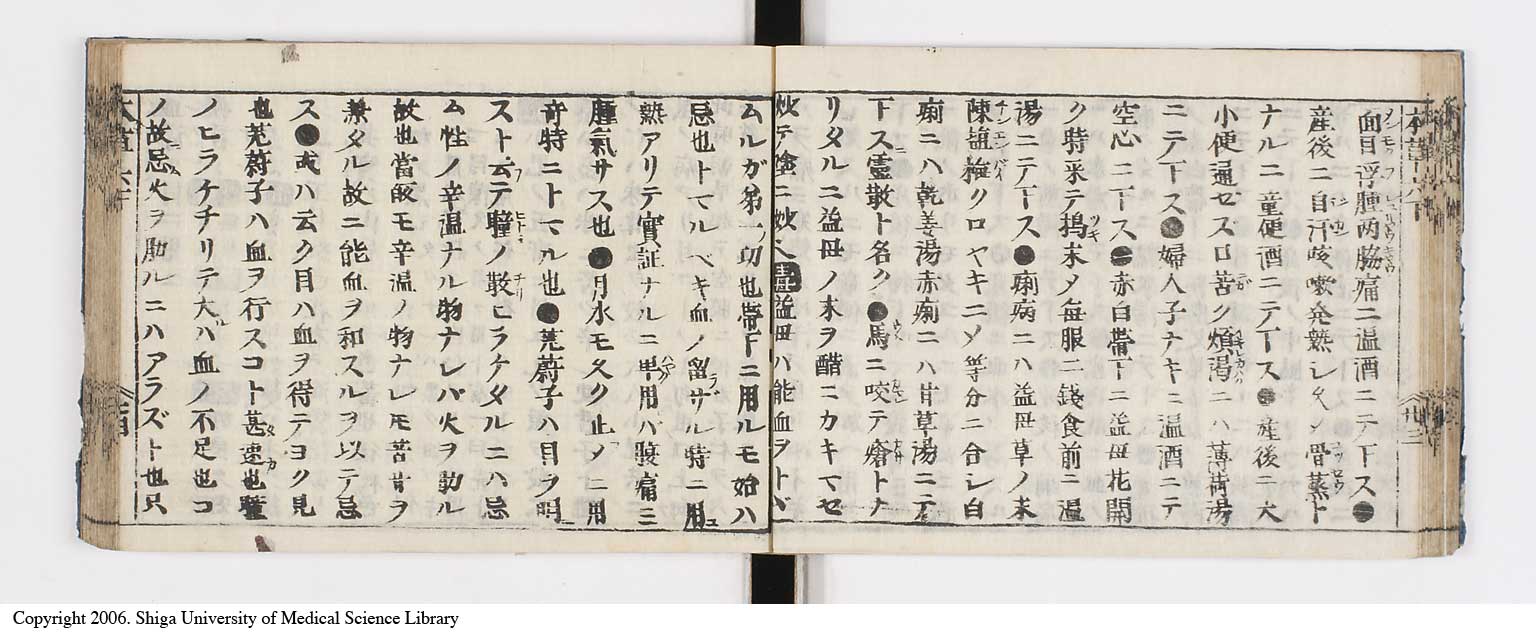 面目浮腫両脇痛ニ温酒ニテ下ス●
産後ニ自汗咳嗽発熱シ久シ骨蒸ト
ナルニ童便酒ニテ下ス●産後ニ大
小便通セス口苦ク煩渇ニハ薄荷湯
ニテ下ス●婦人子ナキニ温酒ニテ
空心ニ下ス●赤白帯下ニ益母花開
ク特采テ搗末メ毎服二錢食前ニ温
湯ニテ下ス●痢病ニハ益母草ノ末
陳塩梅クロヤキニメ等分ニ合シ白
痢ニハ乾姜湯赤痢ニハ甘草湯ニテ
下ス霊散ト名ク●馬ニ咬テ瘡トナ
リタルニ益母ノ末ヲ醋ニカキマセ
炒テ塗ニ妙
益母ハ能血ヲトヾ
ムルガ第一切也帯下ニ用ルモ始ハ
忌也トマルベキ血ノ留サル特ニ用
熱アリテ實証ナルニ早用ハ腹痛ミ
腫氣サス也●月水モ久ク止メニ用
奇特ニトマル也●茺蔚子ハ目ヲ明
スト云テ瞳ノ散ヒラケタルニハ忌
ム性ノ辛温ナル物ナレハ火ヲ動ル
故也當皈モ辛温ノ物ナレモ苦甘ヲ
兼タル故ニ能血ヲ和スルヲ以テ忌
ス●或ハ云ク目ハ血ヲ得テヨク見
也茺蔚子ハ血ヲ行スコト甚速也瞳
ノヒラケチリテ大ハ血ノ不足也コ
ノ故忌火ヲ助ルニハアラズト也只
Copyright 2006. Shiga University of Medical Science Library